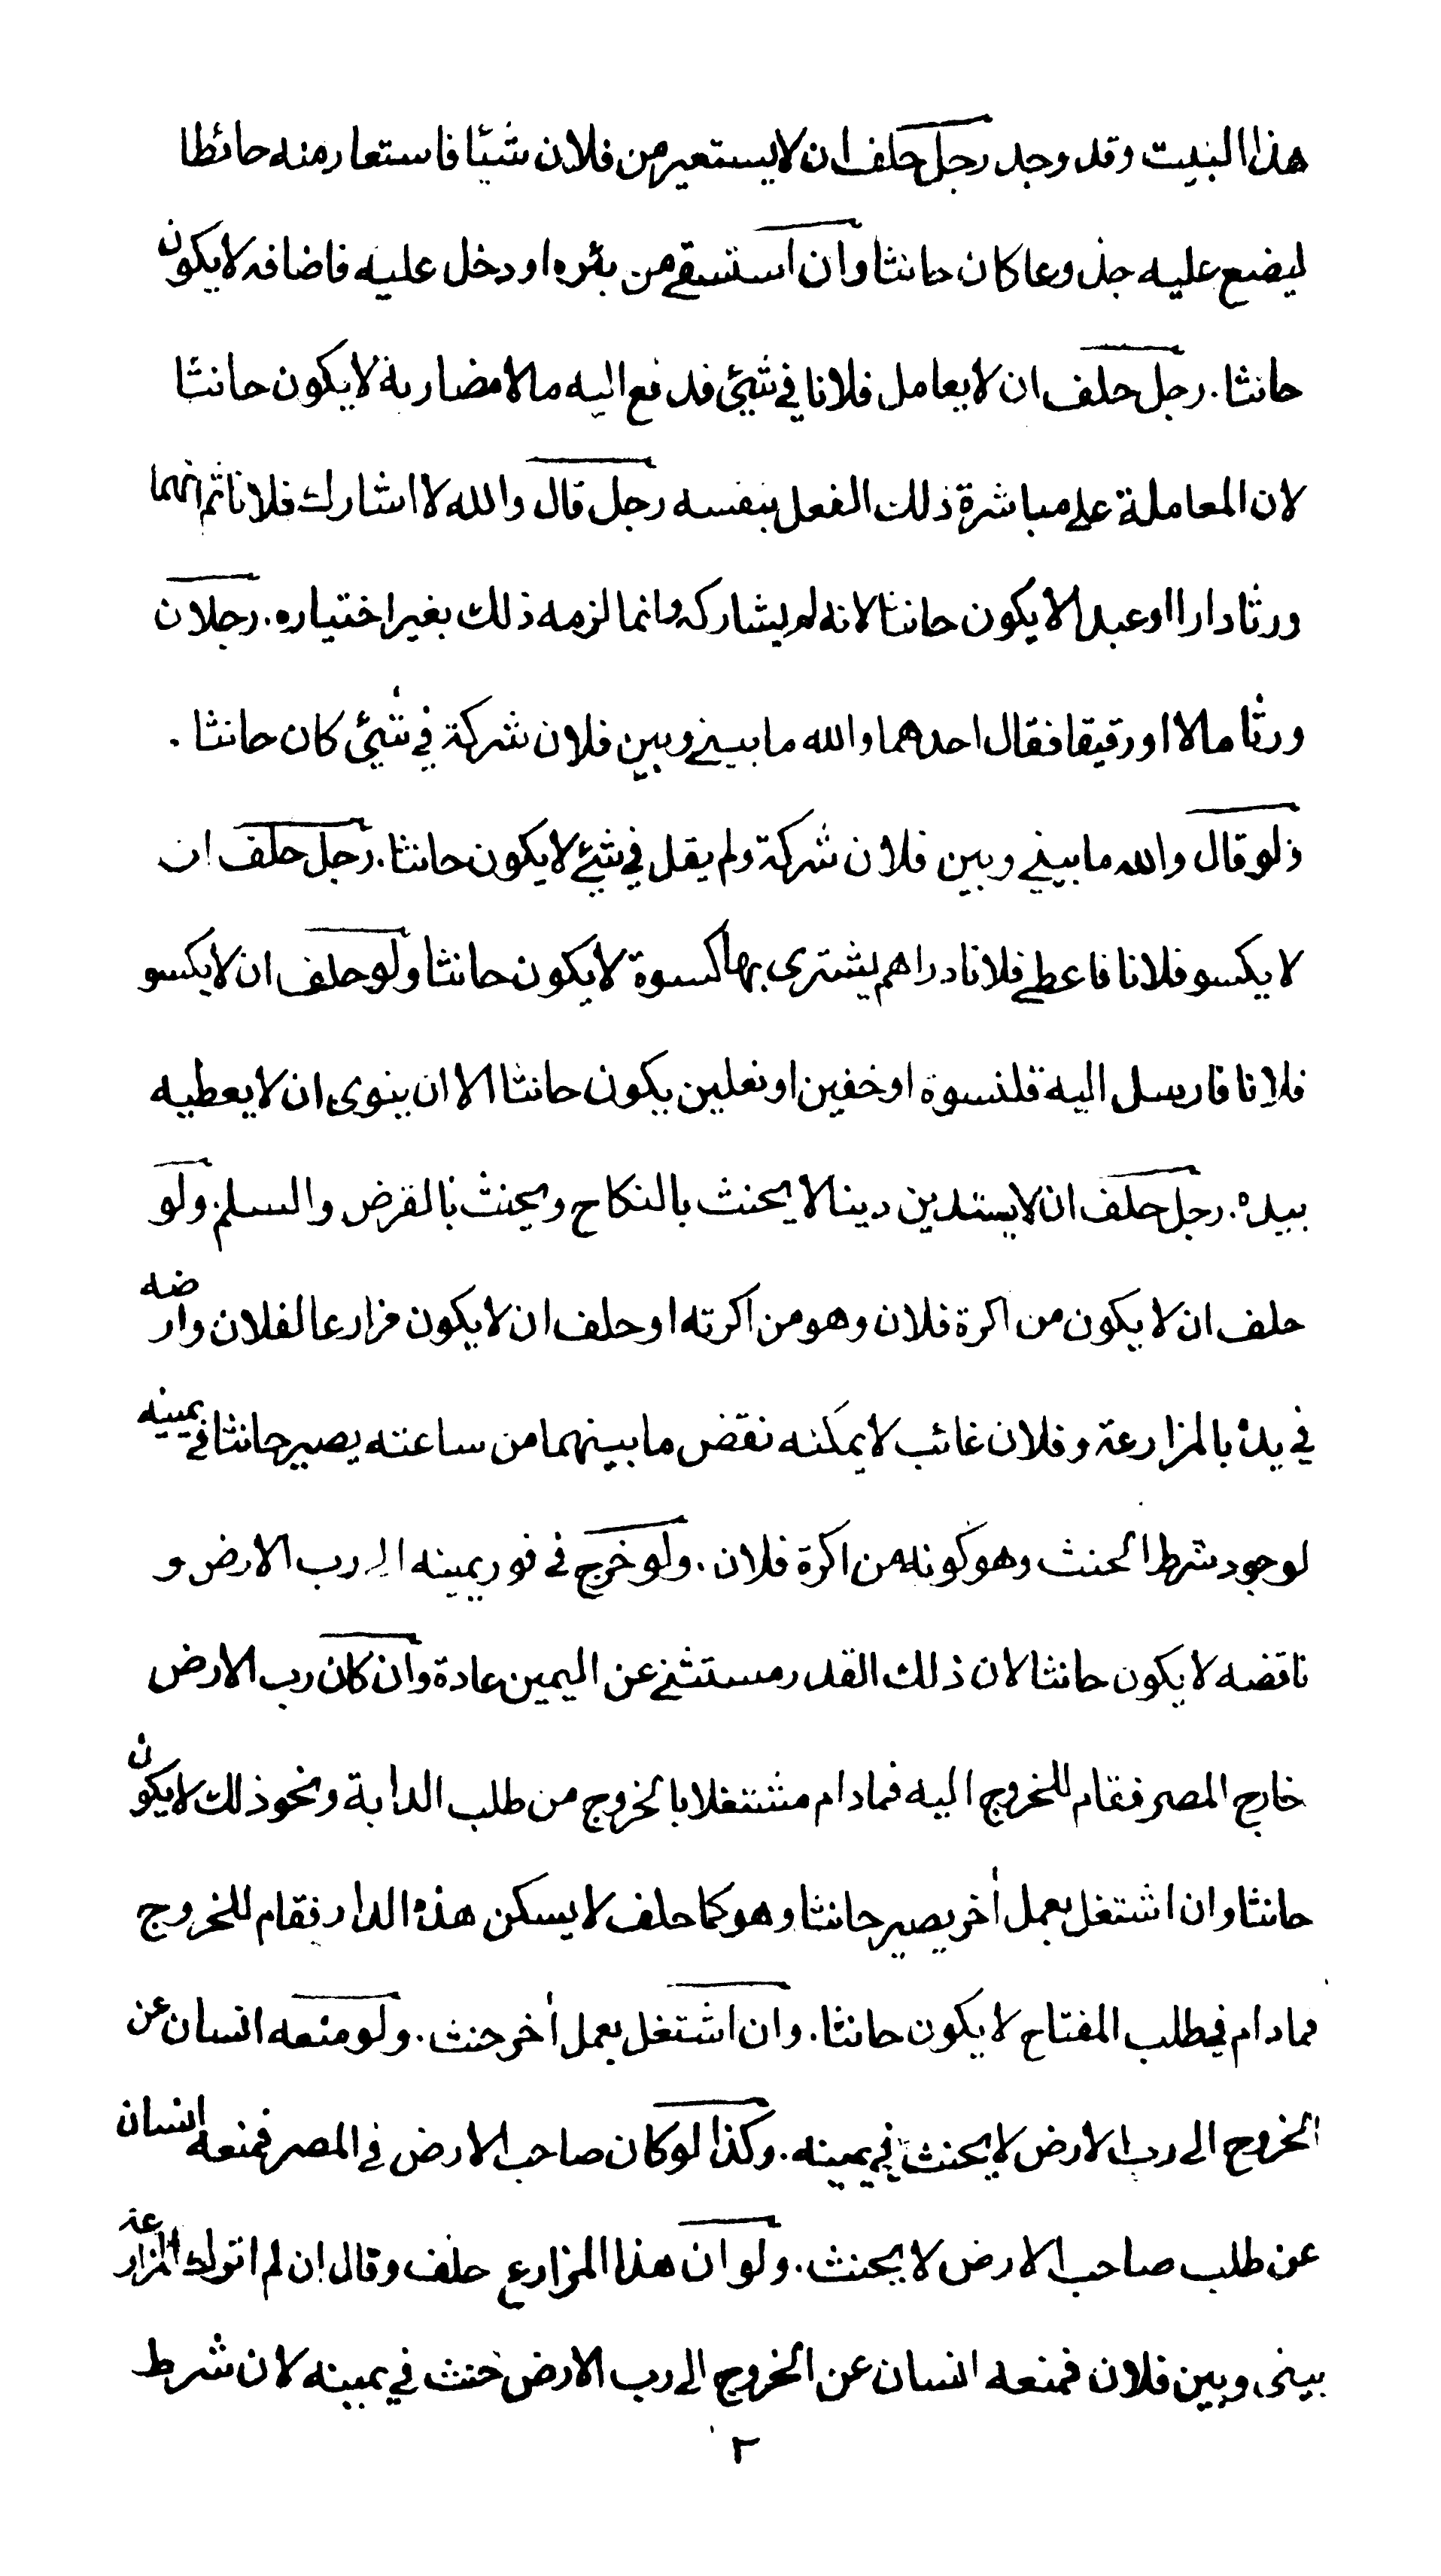 هذا البيت وقد وجد رجل حلف ان لا يستعير من فلان شيئا فاستعار منه حائطا
ليضع عليه جذوعا كان حانثا وان استسقى من بئره او دخل عليه فاضافه لا يكون
حانثا. رجل حلف ان لا يعامل فلانا في شيئ فدفع اليه مالا مضاربة لا يكون حانثا
لان المعاملة على مباشرة ذلك الفعل بنفسه رجل قال والله لا اشارك فلانا ثم انهما
ورثا دارا او عبدا لا يكون حانثا لانه لم يشاركه وانما لزمه ذلك بغير اختياره. رجلان
ورثا مالا او رقيقا فقال احدهما والله ما بيني وبين فلان شركة في شيئ كان حانثا.
ولو قال والله ما بيني وبين فلان شركة ولم يقل في شيئ لا يكون حانثا. رجل حلف ان
لا يكسو فلانا فاعطى فلانا دراهم يشترى بها كسوة لا يكون حانثا ولو حلف ان لا يكسو
فلانا فارسل اليه قلنسوة او خفين او نعلين يكون حانثا الا ان ينوى ان لا يعطيه
بيده. رجل حلف ان لا يستدين دينا لا يحنث بالنكاح ويحنث بالقرض والسلم. ولو
حلف ان لا يكون من اكرة فلان وهو من اكرته او حلف ان لا يكون مزارعا لفلان وارضه
في يده بالمزارعة وفلان غائب لا يمكنه نقض ما بينهما من ساعته يصير حانثا في يمينه
لوجود شرط الحنث وهو كونه من اكرة فلان. ولو خرج في فور يمينه الى رب الارض و
ناقضه لا يكون حانثا لان ذلك القدر مستثنى عن اليمين عادة وان كان رب الارض
خارج المصر فقام للخروج اليه فمادام مشتغلا بالخروج من طلب الدابة ونحو ذلك لا يكون
حانثا وان اشتغل بعمل أخر يصير حانثا وهو كما حلف لا يسكن هذه الدار فقام للخروج
فمادام في طلب المفتاح لا يكون حانثا. وان اشتغل بعمل أخر حنث. ولو منعه انسان عن
الخروج الى رب الارض لا يحنث في يمينه. وكذا لو كان صاحب الارض في المصر فمنعه انسان
عن طلب صاحب الارض لا يحنث. ولو ان هذا المزارع حلف وقال ان لم اترك المزارعة
بينى وبين فلان فمنعه انسان عن الخروج الى رب الارض حنث في يمينه لان شرط
٢